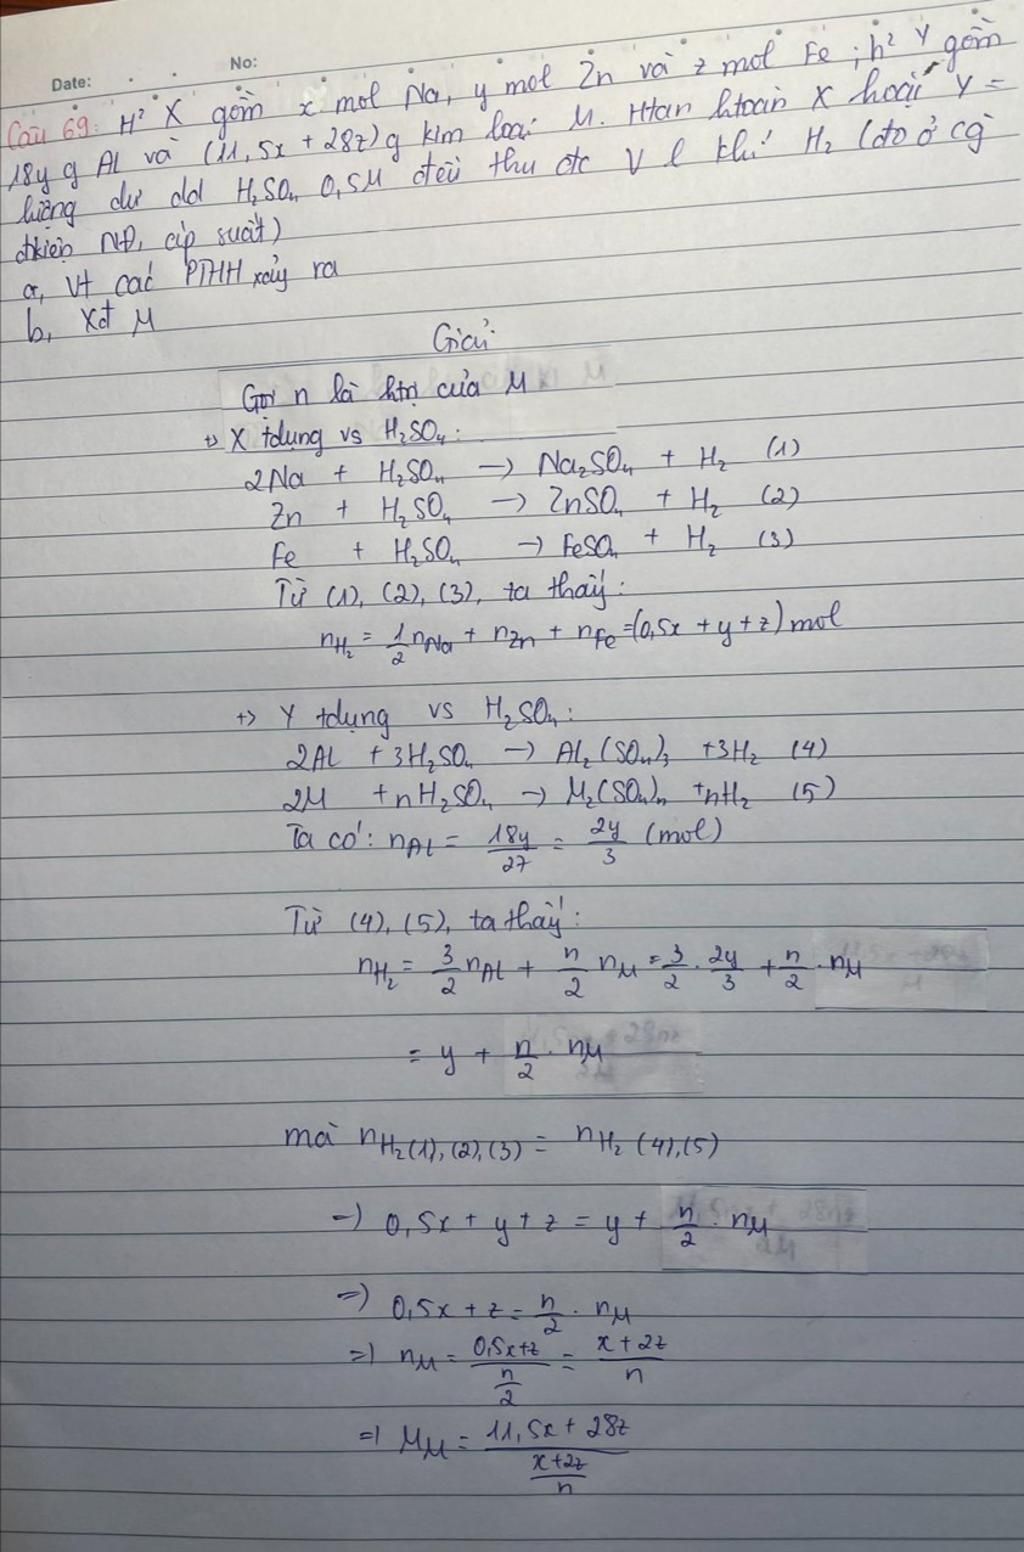 Date: No:
Câu 69: H² X gồm x mol Na, y mol Zn và z mol Fe ; h² Y gồm
18y g Al và (11,5x + 28z) g kim loại M. Htan htoàn X hoặc Y =
lượng dư dd H₂SO₄ 0,5M đều thu đc V l khí H₂ (đo ở cg
đkiện NĐ, áp suất)
a, Vt các PTHH xảy ra
b, Xđ M
Giải
Gọi n là htrị của M
+) X tdụng vs H₂SO₄:
2Na + H₂SO₄ → Na₂SO₄ + H₂ (1)
Zn + H₂SO₄ → ZnSO₄ + H₂ (2)
Fe + H₂SO₄ → FeSO₄ + H₂ (3)
Từ (1), (2), (3), ta thấy:
nH₂ = 1/2 nNa + nZn + nFe = (0,5x + y + z) mol
+) Y tdụng vs H₂SO₄:
2Al + 3H₂SO₄ → Al₂(SO₄)₃ + 3H₂ (4)
2M + nH₂SO₄ → M₂(SO₄)n + nH₂ (5)
Ta có: nAl = 18y/27 = 2y/3 (mol)
Từ (4), (5), ta thấy:
nH₂ = 3/2 nAl + n/2 nM = 3/2 . 2y/3 + n/2 . nM
= y + n/2 . nM
mà nH₂(1),(2),(3) = nH₂ (4),(5)
=) 0,5x + y + z = y + n/2 . nM
=) 0,5x + z = n/2 . nM
=) nM = (0,5x+z)/(n/2) = (x + 2z)/n
=) MM = (11,5x + 28z)/((x+2z)/n)